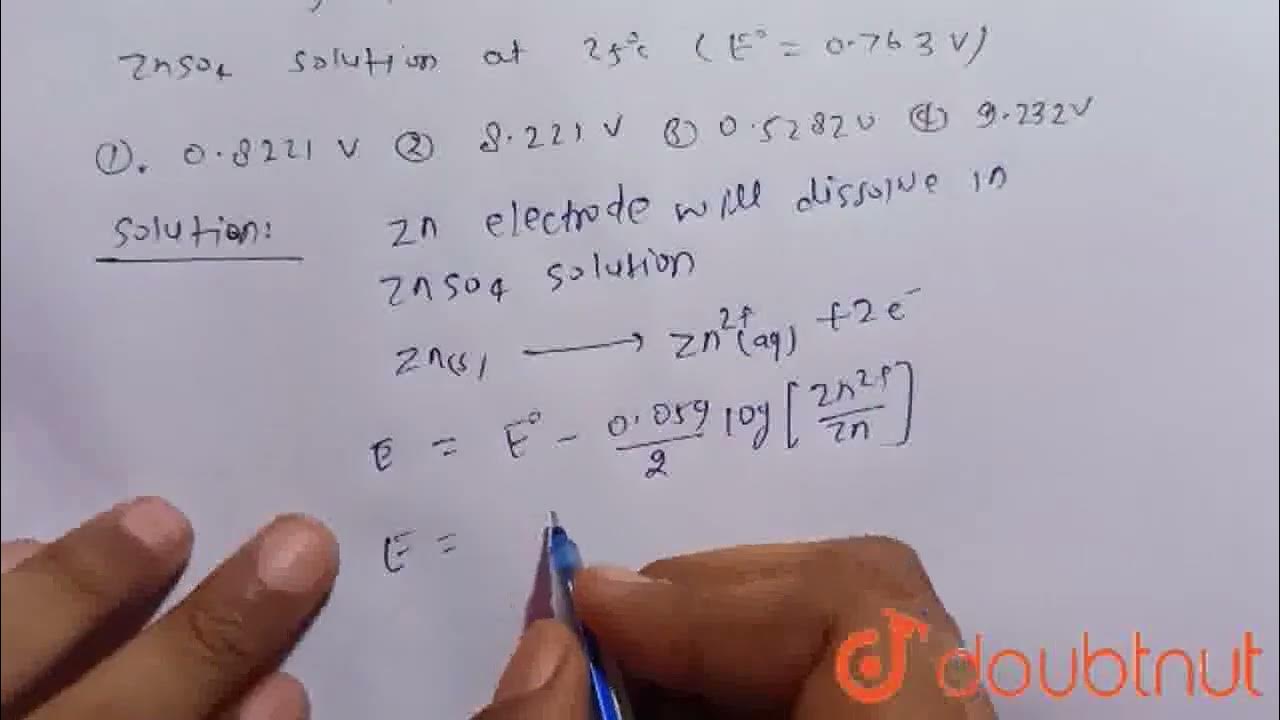 ZnSO4 solution at 25°c (E° = 0.763 V)
①. 0.8221 V ② 8.221 V ③ 0.5282 V ④ 9.232 V
Solution: Zn electrode will dissolve in
ZnSO4 solution
Zn(s) ⟶ Zn²⁺(aq) + 2e⁻
E = E° - 0.059/2 log [Zn²⁺/Zn]
E =
doubtnut